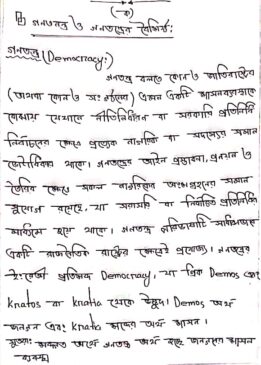 (-ক)
গনতন্ত্র ও গনতন্ত্রের বৈশিষ্ট্য:
গনতন্ত্র (Democracy:)
গনতন্ত্র বলতে কোনও জাতিরাষ্ট্রের
(অথবা কোনও সংগঠনের) এমন একটি শাসনব্যবস্থাকে
বোঝায় যেখানে নীতিনির্ধারন বা সরকারি প্রতিনিধি
নির্বাচনের ক্ষেত্রে প্রত্যেক নাগরিক বা সদস্যের সমান
ভোটাধিকার থাকে। গনতন্ত্রে আইন প্রস্তাবনা, প্রনয়ন ও
তৈরির ক্ষেত্রে সকল নাগরিকের অংশগ্রহনের সমান
সুযোগ রয়েছে, যা সরাসরি বা নির্বাচিত প্রতিনিধির
মাধ্যমে হয়ে থাকে। গনতন্ত্র পরিভাষাটি সাধিরনভাবে
একটি রাজনৈতিক রাষ্ট্রের ক্ষেত্রেই প্রযোজ্য। গনতন্ত্রের
ইংরেজী প্রতিশব্দ Democracy, যা গ্রিক Demos এবং
Kratos বা Kratia থেকে উদ্ভূত। Demos অর্থ
জনগন এবং Kratia শব্দের অর্থ শাসন।
সুতরাং অর্থে গনতন্ত্র অর্থ হচ্ছে জনগনের শাসন
ব্যবস্থা